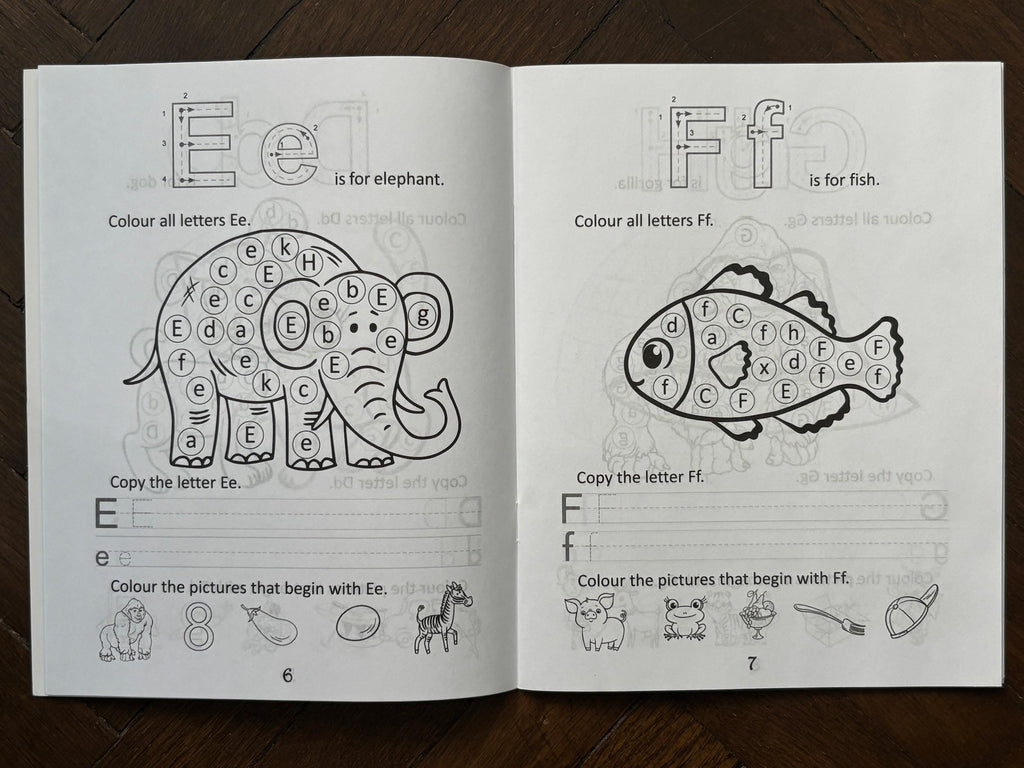 1 2 3 4 E e 2
is for elephant.
Colour all letters Ee.
e k
c E H
e c e b E
g
E d a E b e
f e E
e k c
a E e
Copy the letter Ee.
E E
e e
Colour the pictures that begin with Ee.
8
6
1 2 3 F 2 f 1
is for fish.
Colour all letters Ff.
d f C
a f h
F e F
f x d f f
C F E
Copy the letter Ff.
F F
f f
Colour the pictures that begin with Ff.
7